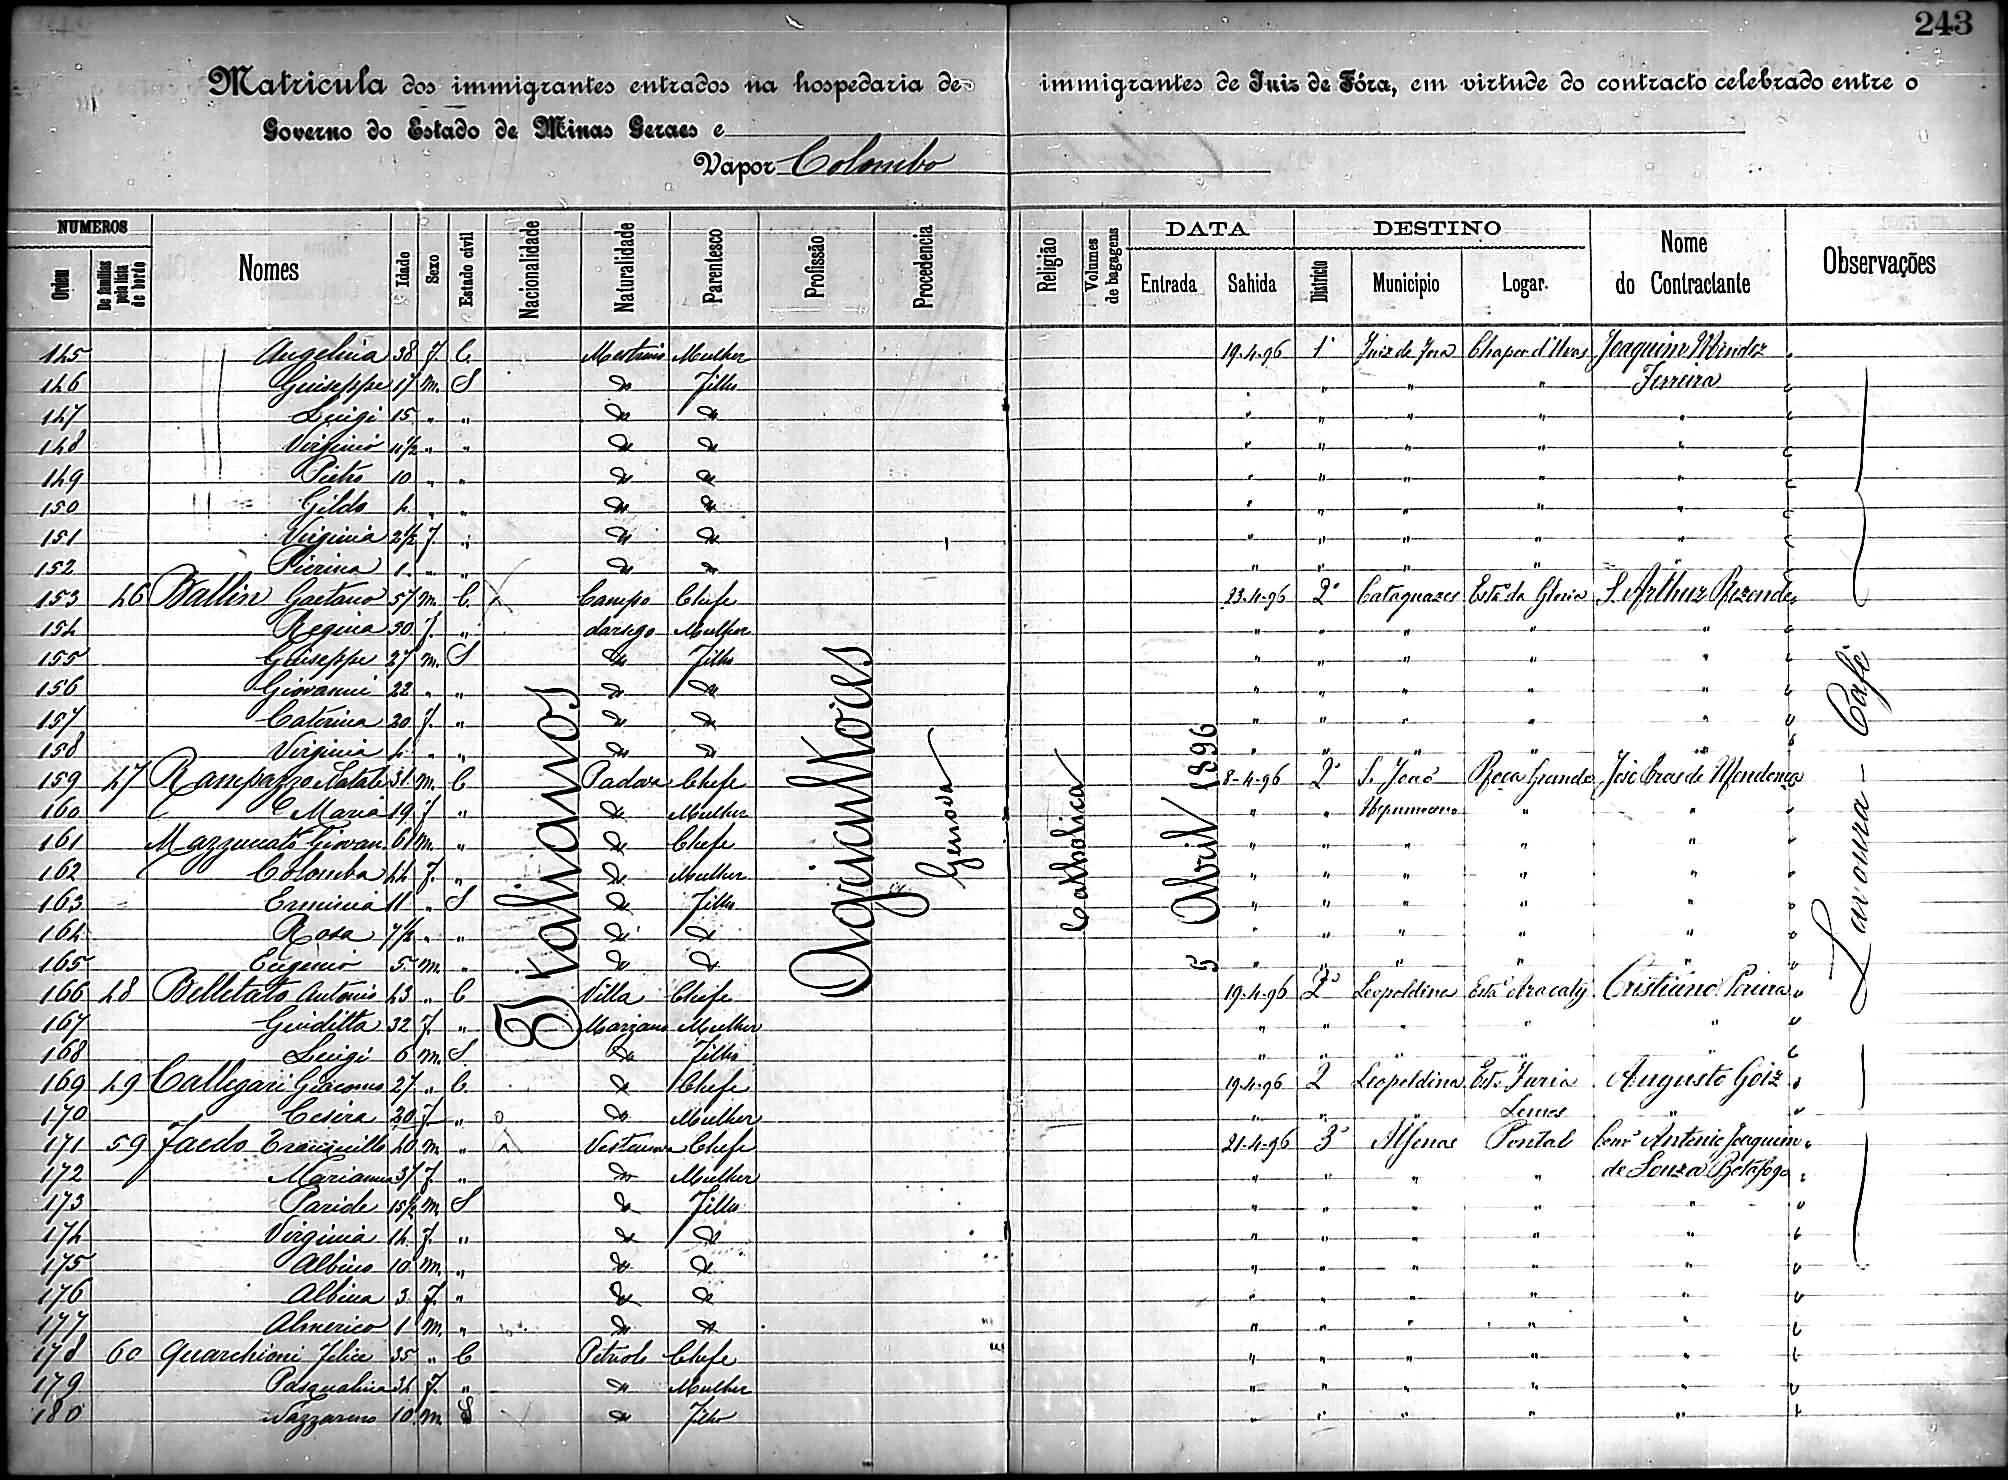 243
Matricula dos immigrantes entrados na hospedaria de immigrantes de Juiz de Fóra, em virtude do contracto celebrado entre o
Governo do Estado de Minas Geraes e
Vapor Colombo
NUMEROS DATA DESTINO
Ordem De familias pela lista de bordo Nomes Idade Sexo Estado civil Nacionalidade Naturalidade Parentesco Profissão Procedencia Religião Volumes de bagagens Entrada Sahida Districto Municipio Logar. Nome do Contractante Observações
145 Angelina 38 F. C. Mulher 19-4-96 1º Juiz de Fora Chapeo d'Uvas Joaquim Mendes
146 Giuseppe 17 m. S Do Filho " " " Ferreira
147 Luigi 15 " " Do Do " " " " "
148 Virginio 11 1/2 " " Do Do " " " " "
149 Pietro 10 " " Do Do " " " " "
150 Gildo 4 " " Do Do " " " " "
151 Virginia 2 1/2 F. " Do Do " " " " "
152 Pierina 1 " " Do Do " " " " "
153 46 Ballin Gaetano 57 m. C. Campo Chefe 23-4-96 2º Cataguazes Estº da Gloria S. Arthur Rezende
154 Regina 30 F. " darsego Mulher " " " " "
155 Giuseppe 27 m. S Do Filho " " " " "
156 Giovanni 22 " " Do Do " " " " "
157 Caterina 20 F. " Do Do " " " " "
158 Virginia 4 " " Do Do " " " " "
159 47 Rampazzo Natale 31 m. C Padova Chefe 8-4-96 2º S. João Roça Grande José Braz de Mendonça
160 Maria 19 F " Do Mulher " Nepomuceno " "
161 Mazzuccato Giovan. 61 m. " Do Chefe " " " " "
162 Colomba 44 F. " Do Mulher " " " " "
163 Erminia 11 " S Do Filho " " " " "
164 Rosa 7 1/2 " " Do Do " " " " "
165 Eugenio 5 m. " Do Do " " " " "
166 48 Belletato Antonio 43 " C Villa Chefe 19-4-96 2º Leopoldina Estº Aracaty Cristiano Pereira
167 Giuditta 32 F. " Marzana Mulher " " " " "
168 Luigi 6 m. S Do Filho " " " " "
169 49 Callegari Giacomo 27 " C. Do Chefe 19-4-96 2 Leopoldina Estº Furia Augusto Goiz
170 Cesira 20 F " Do Mulher " " " Lemos "
171 59 Faedo Tranquillo 40 m. " Chefe 21-4-96 3º Alfenas Pontal Comº Antonio Joaquim
172 Marianna 37 F. " Do Mulher " " " " de Souza Botafogo
173 Paride 15 1/2 m. S Do Filho " " " " "
174 Virginia 14 F. " Do Do " " " " "
175 Albino 10 m. " Do Do " " " " "
176 Albina 3 F. " Do Do " " " " "
177 Almerico 1 m. " Do Do " " " " "
178 60 Quarchioni Felice 35 " C Petriolo Chefe " " " " "
179 Pasqualina 34 F. " Do Mulher " " " " "
180 Nazzareno 10 m. S Do Filho " " " " "
Italianos
Agricultores
Genova
Catholica
5 Abril 1896
Lavoura - Café